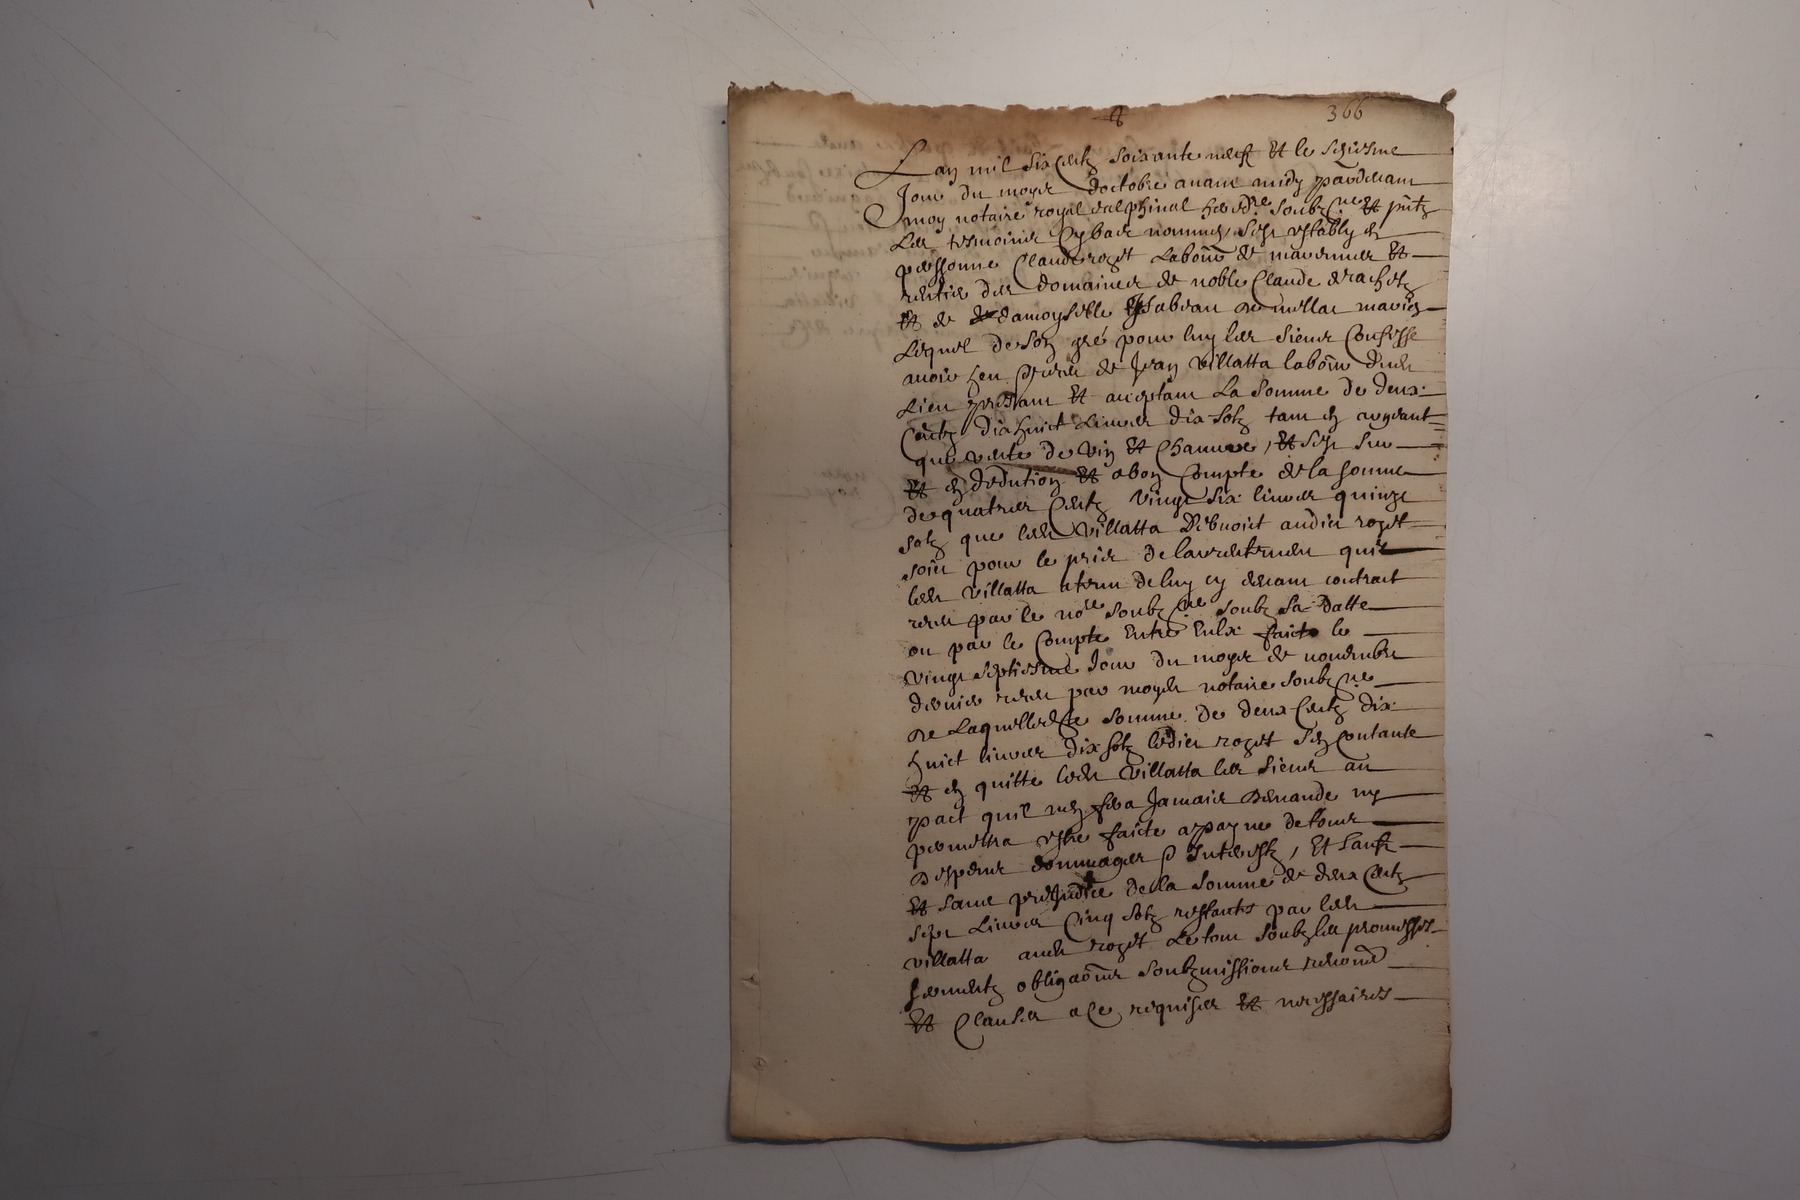 366
Lan mil six centz soixante neuf et le seziesme
Jour du moys doctobre avant midy pardevant
moy notaire royal dalphinal hered.re soubz.ne et pntz
les tesmoins cybas nommes sest estably en
personne Claude roget labour de
rentier des domaines de noble Claude de rachetz
et de damoyselle Ysabeau de maries
Lequel de son gré pour luy les siens Confesse
avoir heu de Jean Villatta labour dudit
Lieu present et aceptant La Somme de deux
Centz dixhuict Livres dix solz tant en argent
que vente de vin et Chanvre, et sest sur
et en dedution et abon Compte de la somme
de quatres Centz vingt six livres quinze
solz que led villatta debvoict audict roget
soict pour le prix de larrentement quil
led villatta tenu de luy cy devant contract
receu par le no.re soubz.ne soubz sa datte
ou par le Compte Entre Eulx faict le
vingt septiesme Jour du moys de novembre
dernier receu par moyd notaire soubz.ne
De Laquelle somme de deux Centz dix
huict livres dix solz ledict roget sen contante
et en quitte led Villatta les siens au
pact quil nen fera Jamais demande ny
permettra estre faicte a payne de tous
despens dommages Interestz, et sauf
et sans prejudice de la somme de deux Centz
sept Livres Cinq solz restants par led
villatta aud roget Le tout soubz les promesses
sermentz obligaons soubzmissions renonc
et Clauses a ce requises et necessaires